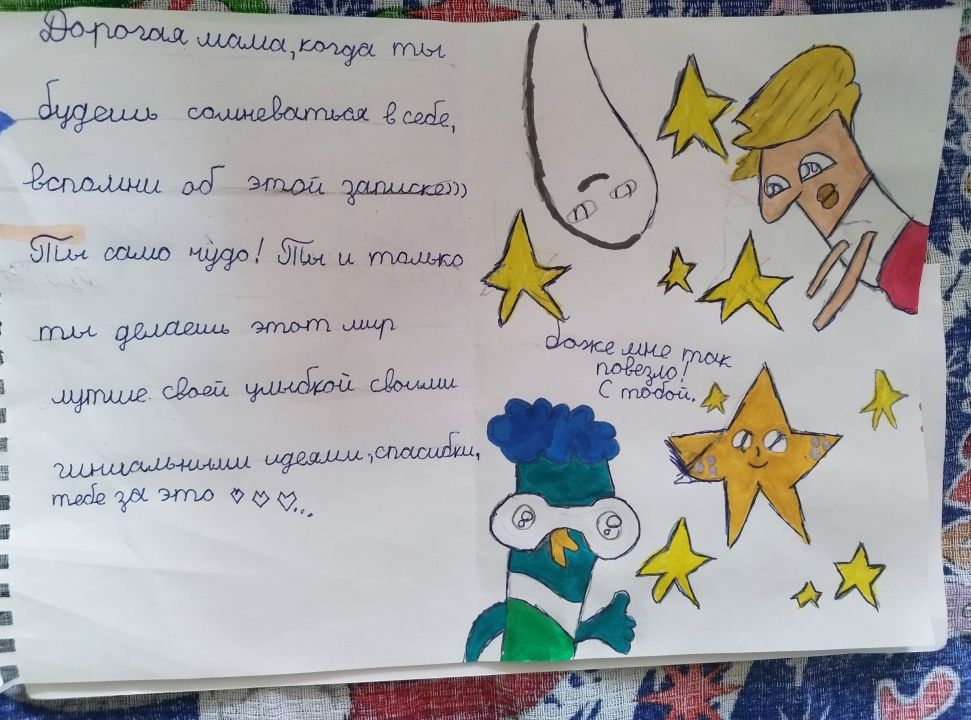 Дорогая мама, когда ты
будешь сомневаться в себе,
вспомни об этой записке))
Ты само чудо! Ты и только
ты делаешь этот мир
лутше своей улыбкой своими
гиниальными идеями, спасибки,
тебе за это ♡♡♡...
Боже мне так
повезло!
С тобой.